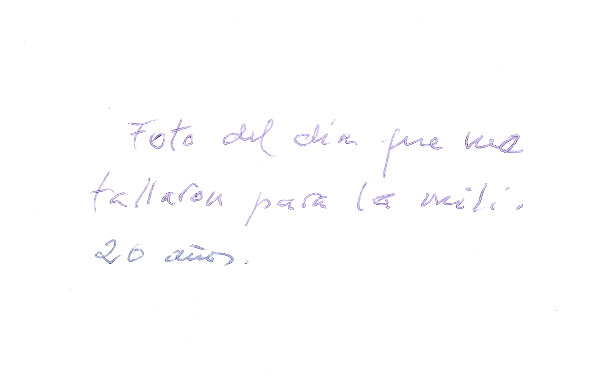 Foto del día que me
tallaron para la mili.
20 años.